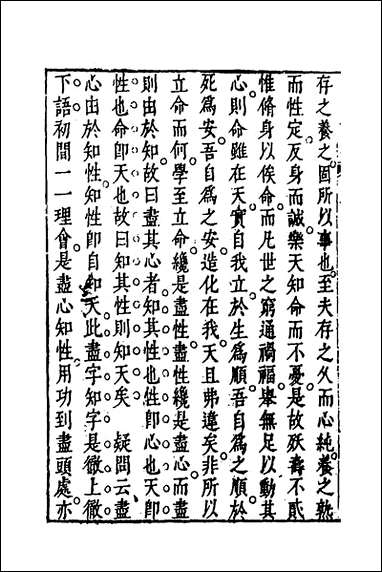 存之養之固所以事也至夫存之久而心純養之熟
而性定反身而誠樂天知命而不憂是故殀壽不貳
惟脩身以俟命而凡世之窮通禍福舉無足以動其
心則命雖在天實自我立於生為順吾自為之順於
死為安吾自為之安造化在我天且弗違矣非所以
立命而何學至立命纔是盡性盡性纔是盡心而盡
則由於知故曰盡其心者知其性也性即心也天即
性也命即天也故曰知其性則知天矣 疑問云盡
心由於知性知性即自知天此盡字知字是徹上徹
下語初間一一理會是盡心知性用功到盡頭處亦